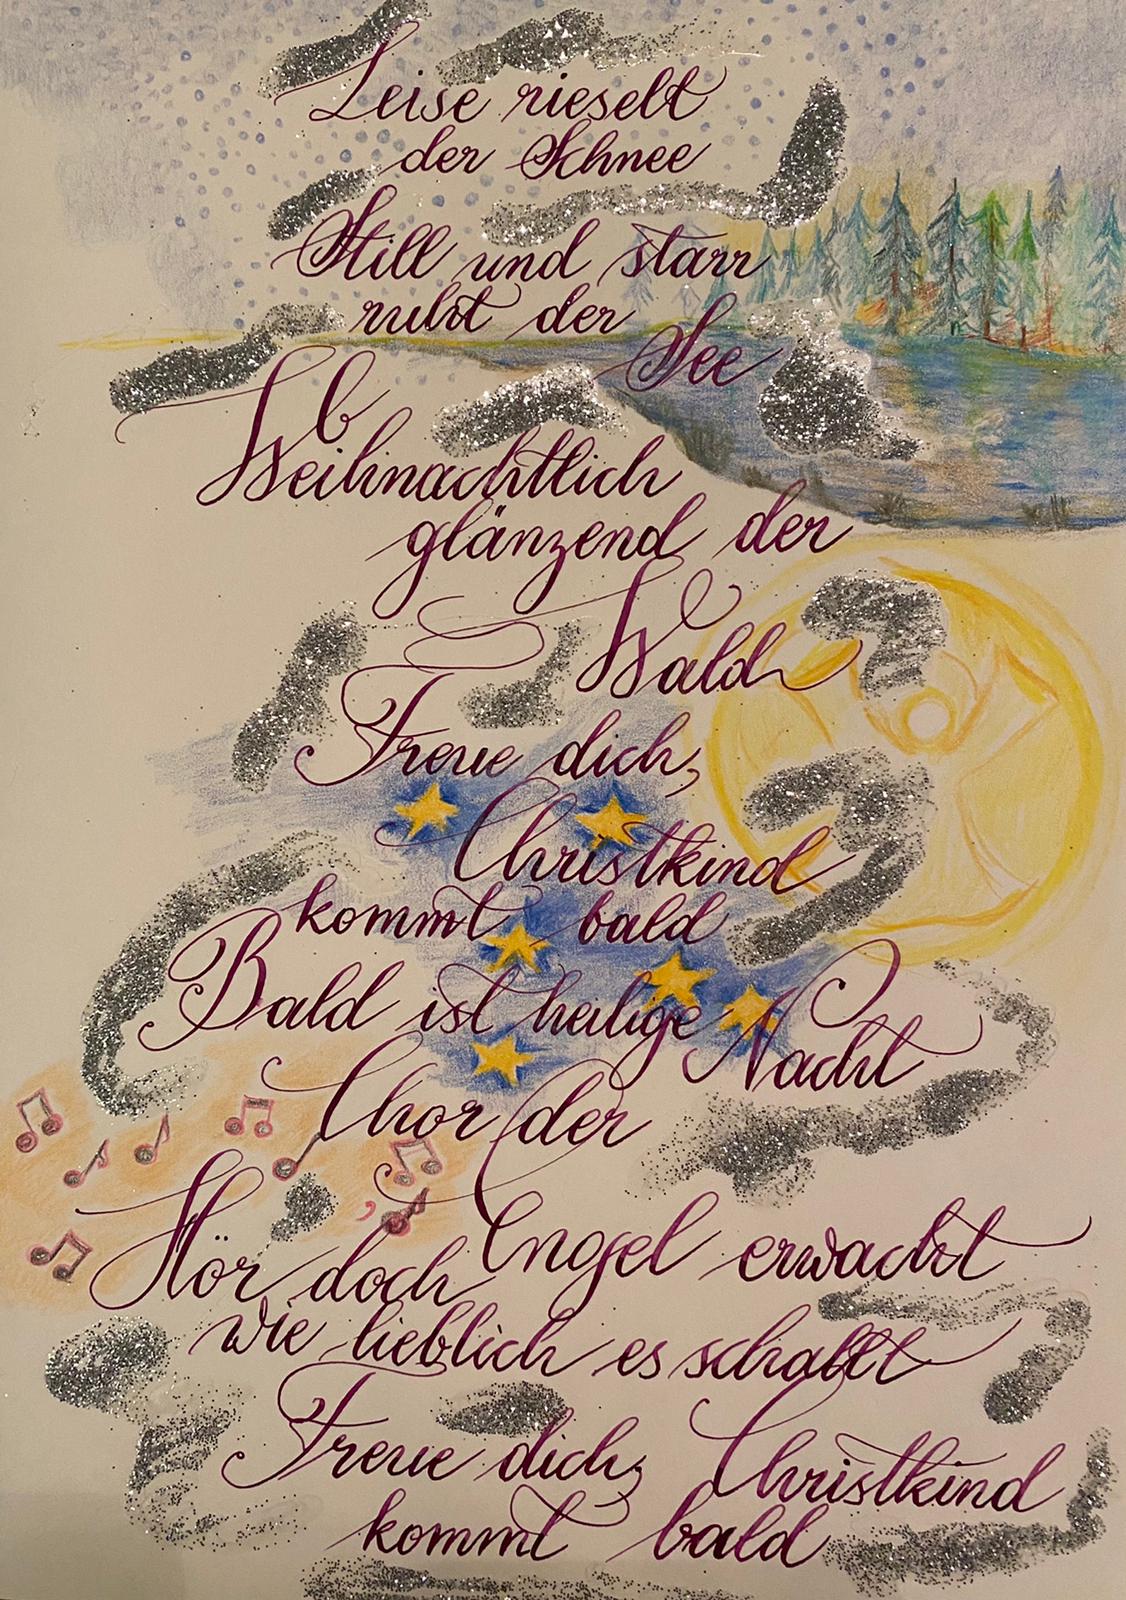 Leise rieselt
der Schnee
Still und starr
ruht der
See
Weihnachtlich
glänzend der
Wald
Freue dich,
Christkind
kommt bald
Bald ist heilige Nacht
Chor der
Engel erwacht
Hör doch
wie lieblich es schallt
Freue dich, Christkind
kommt bald